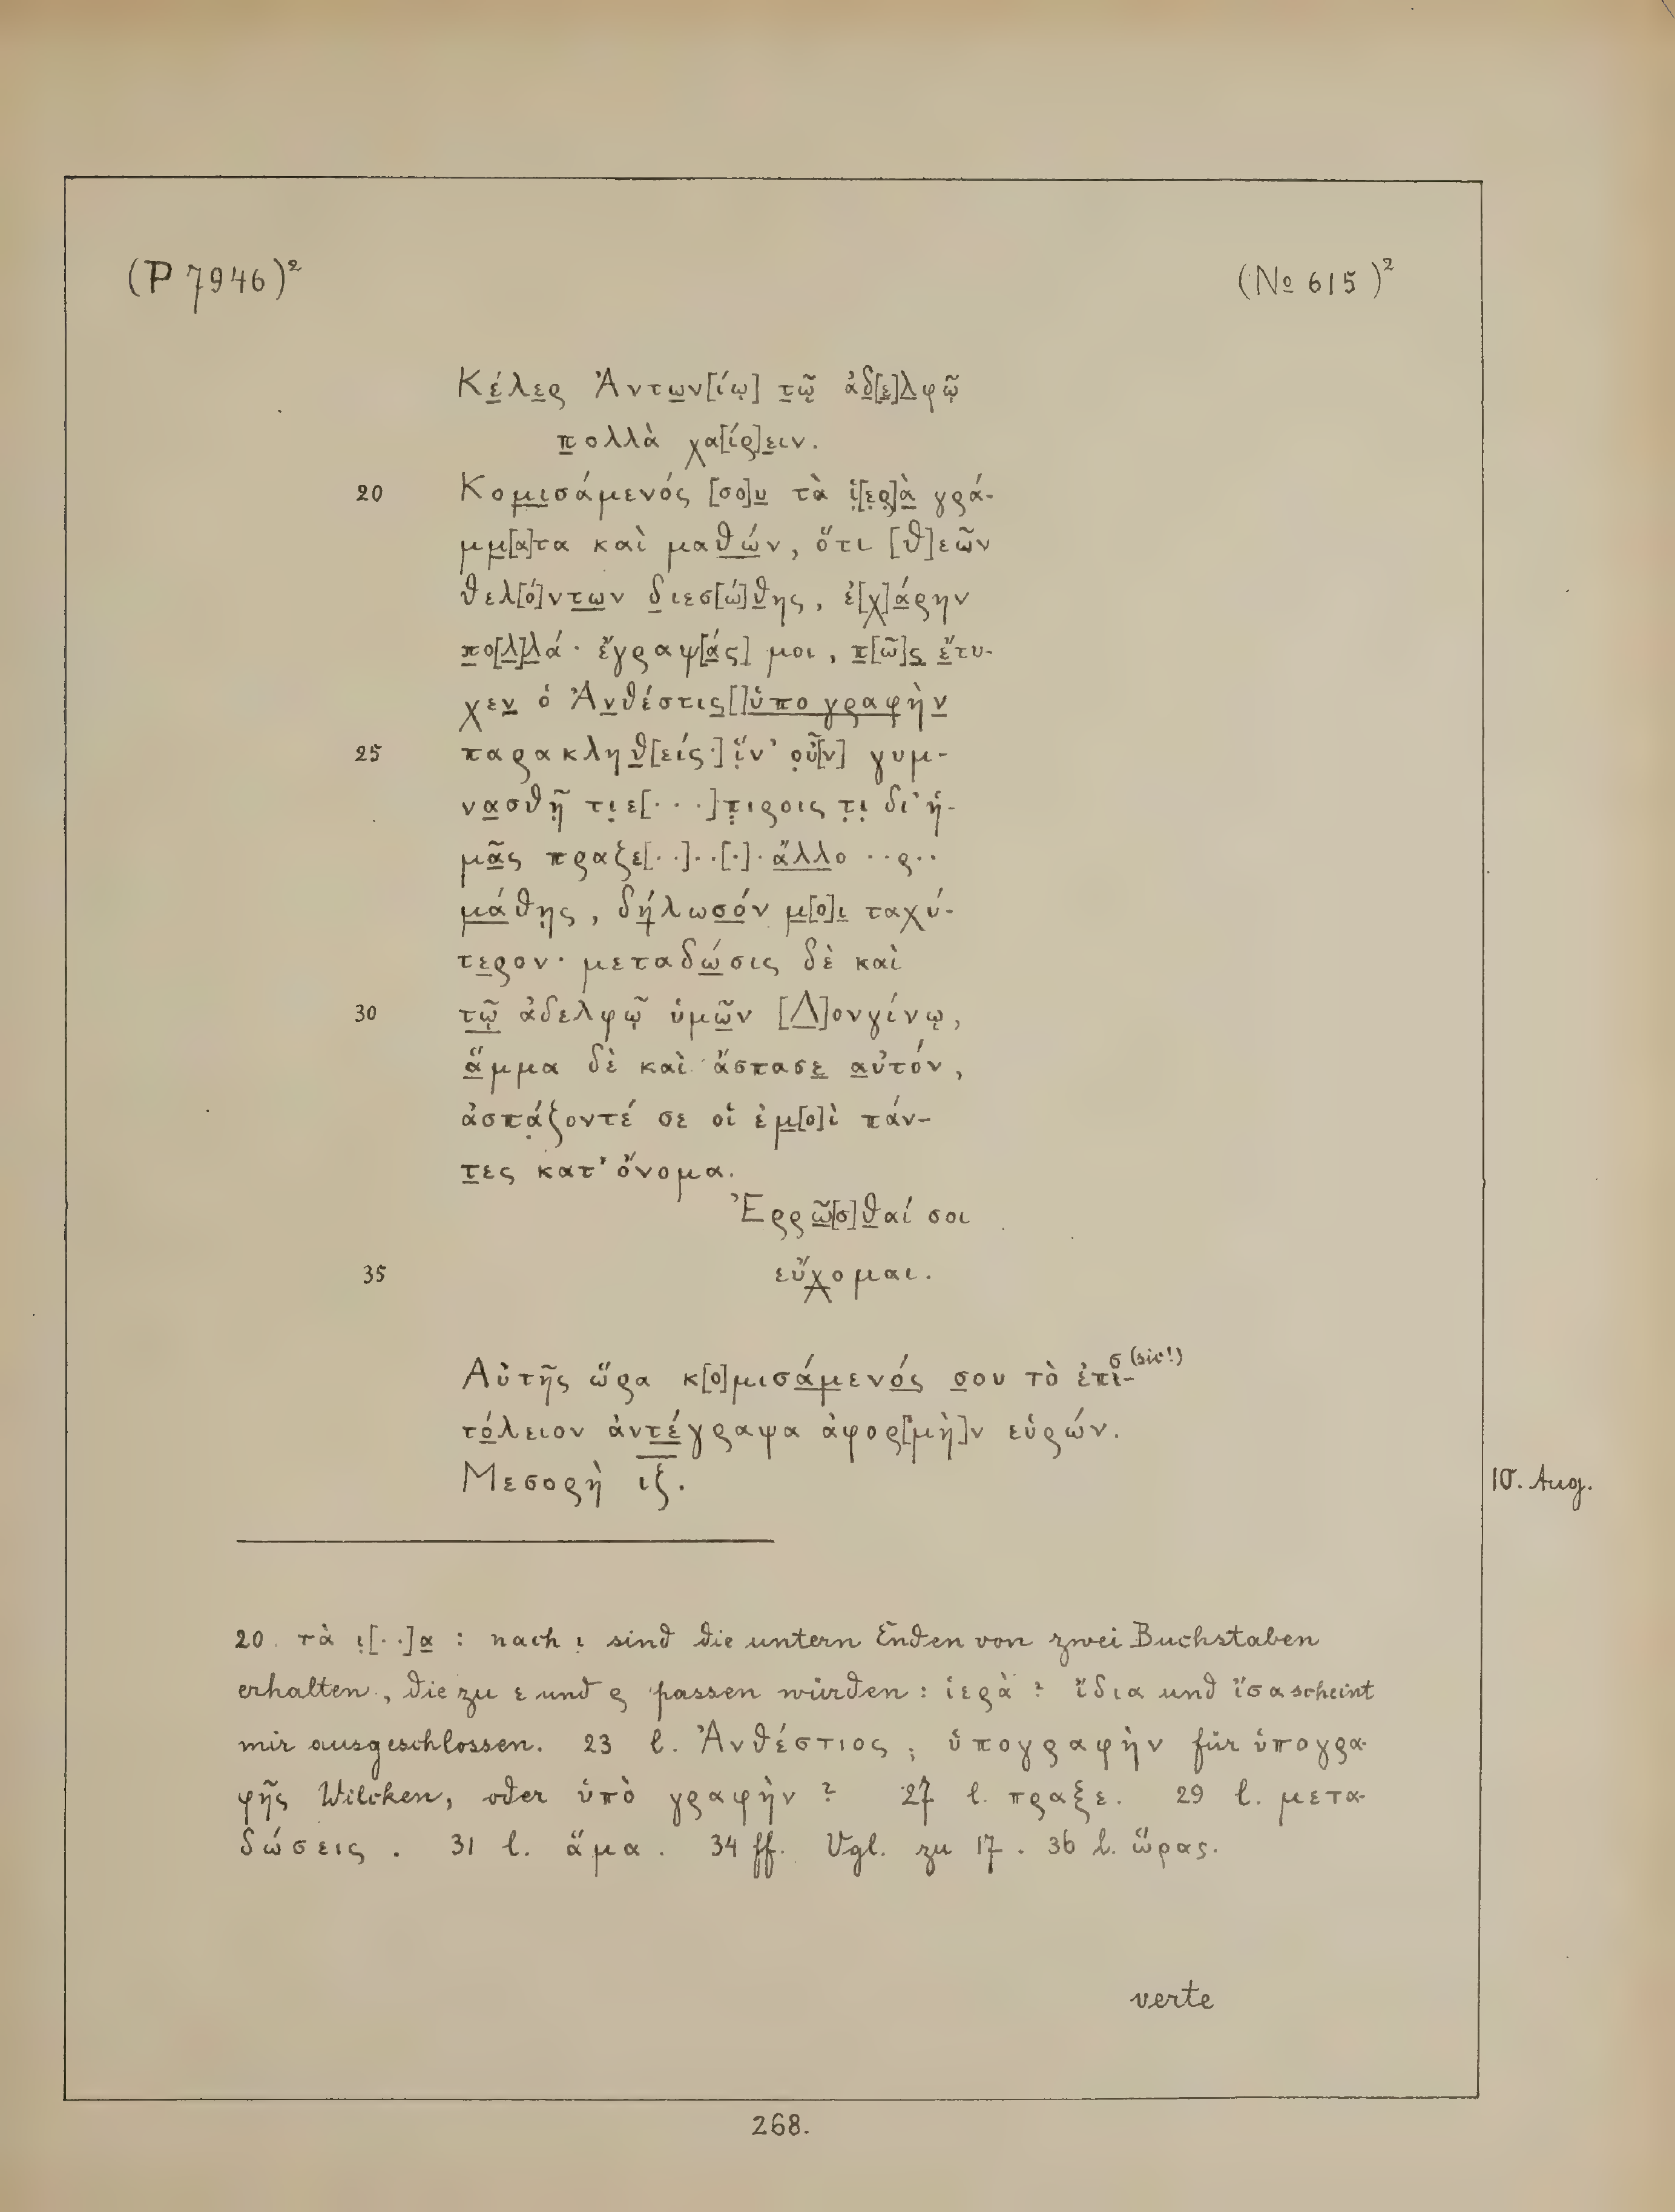 (P 7946)²
(No 615)²
Κέλερ Ἀντων[ίῳ] τῷ ἀδ[ε]λφῷ
πολλὰ χα[ίρ]ειν.
20 Κομισάμενός [σο]υ τὰ ἱ̣[ε̣ρ̣]ὰ γρά-
μμ[α]τα καὶ μαθών, ὅτι [θ]εῶν
θελ[ό]ντων διεσ[ώ]θης, ἐ[χ]άρην
πο[λ]λά· ἔγραψ[άς] μοι, π[ῶ]ς ἔτυ-
χεν ὁ Ἀνθέστις[]ὑπο γραφὴν
25 παρακληθ[είς·] ἵ̣ν' ο̣ὖ[ν] γυμ-
νασθῇ̣ τι̣ε[· · ·]π̣ιροις τ̣ι̣ δι' ἡ-
μᾶς πραζε[· ·]· ·[·]· ἄλλο · · ρ · ·
μάθη̣ς, δήλωσόν μ[ο]ι ταχύ-
τερον· μεταδώσις δὲ καὶ
30 τῷ ἀδελφῷ ὑμῶν [Λ]ονγίνῳ,
ἅμμα δὲ καὶ ἄσπασε αὐτόν,
ἀσπά̣ζοντέ σε οἱ ἐμ[ο]ὶ πάν-
τες κατ' ὄνομα.
Ἐρρῶ[σ]θαί σοι
35 εὔχομαι.
Αὐτῆς ὥρα κ[ο]μισάμενός σου τὸ ἐπι-σ (sic!)
τόλειον ἀντέγραψα ἀφορ[μὴ]ν εὑρών.
Μεσορὴ ιζ.
10. Aug.
20. τὰ ι̣[· ·]α : nach ι̣ sind die untern Enden von zwei Buchstaben
erhalten, die zu ε und ρ passen würden : ἱερὰ ? ἴδια und ἴσα scheint
mir ausgeschlossen. 23 l. Ἀνθέστιος ; ὑπογραφὴν für ὑπογρα-
φῆς Wilcken, oder ὑπὸ γραφὴν ? 27 l. πραξε. 29 l. μετα-
δώσεις . 31 l. ἅμα . 34 ff. Vgl. zu 17 . 36 l. ὥρας.
verte
268.